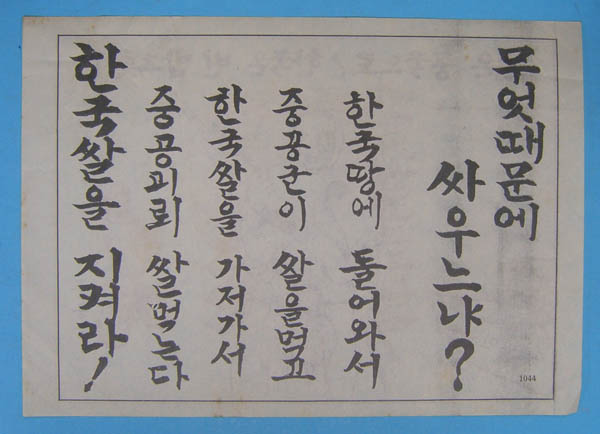 무엇때문에
싸우느냐?
한국땅에 들어와서
중공군이 쌀을먹고
한국쌀을 가저가서
중공괴뢰 쌀먹는다
한국쌀을 지켜라!
1044